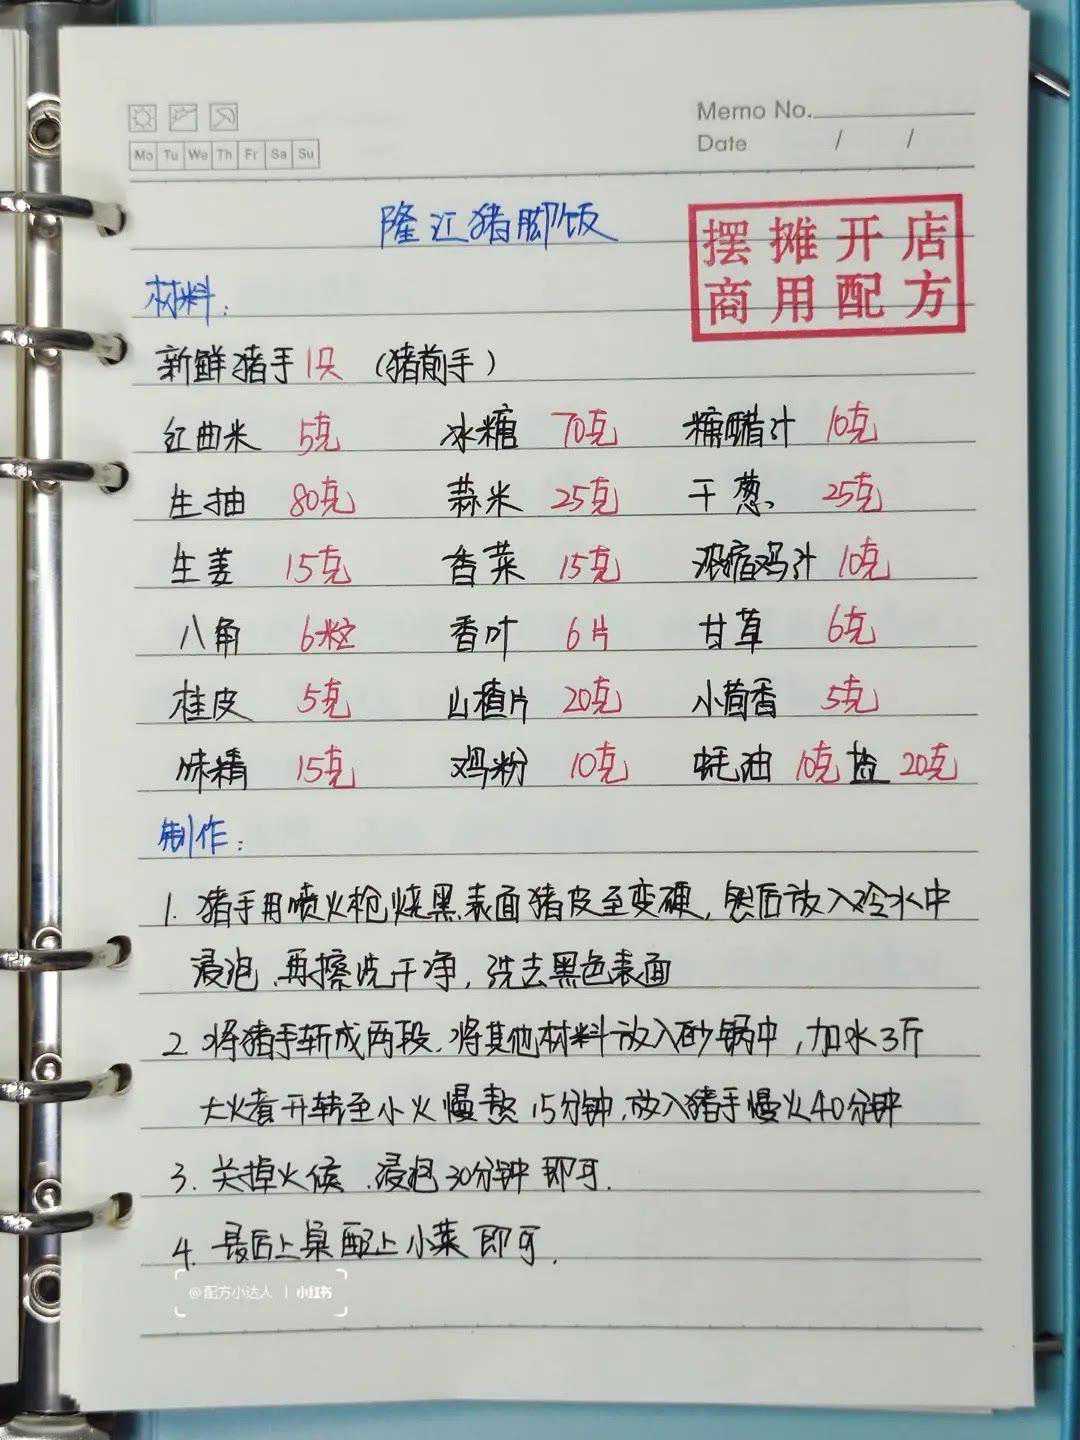 Memo No.
Mo Tu We Th Fr Sa Su
Date / /
隆江猪脚饭
摆摊开店
商用配方
材料:
新鲜猪手1只 (猪前手)
红曲米 5克 冰糖 70克 糖醋汁 10克
生抽 80克 蒜米 25克 干葱 25克
生姜 15克 香菜 15克 浓缩鸡汁 10克
八角 6粒 香叶 6片 甘草 6克
桂皮 5克 山楂片 20克 小茴香 5克
味精 15克 鸡粉 10克 蚝油 10克 盐 20克
制作:
1. 猪手用喷火枪烧黑表面猪皮至变硬,然后放入冷水中
浸泡,再擦洗干净,洗去黑色表面
2. 将猪手斩成两段,将其他材料放入砂锅中,加水3斤
大火煮开转至小火慢熬15分钟,放入猪手慢火40分钟
3. 关掉火候,浸泡30分钟即可.
4. 最后上桌配上小菜即可.
@配方小达人 | 小红书